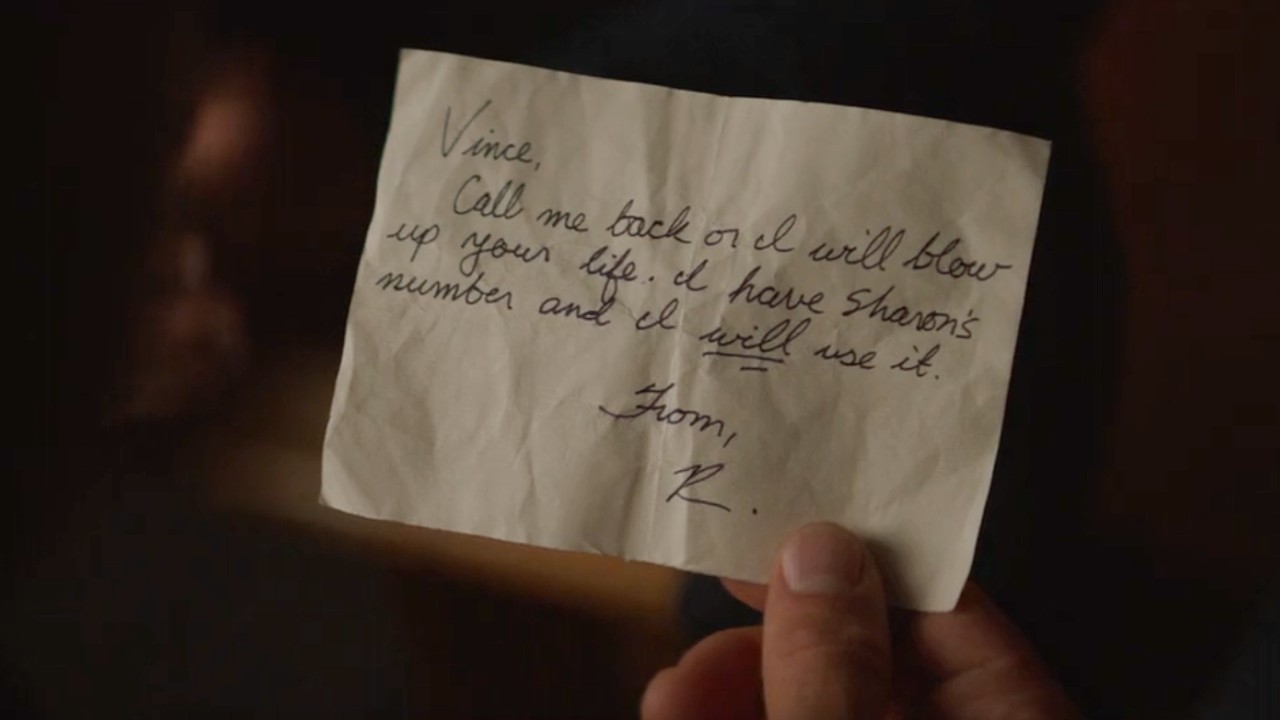 Vince,
Call me back or I will blow
up your life. I have Sharon's
number and I will use it.
From,
R.